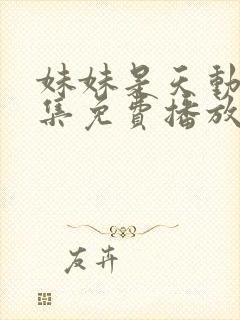 妹妹是天動
集免費播放
友卉